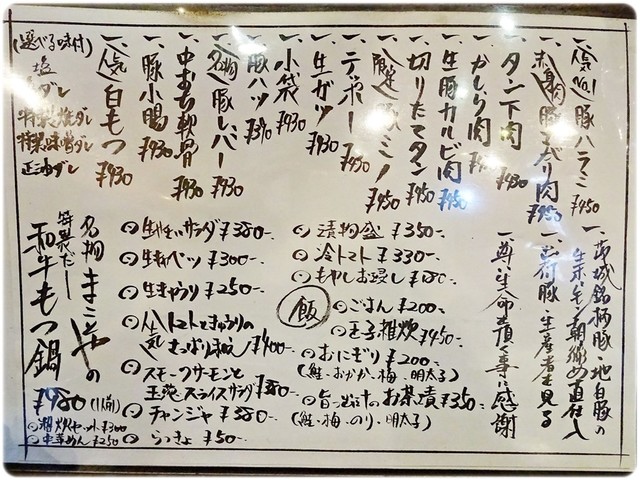 一、人気No.1 豚ハラミ ¥450
一、赤身 豚 肉 ¥450
一、タン下肉 ¥430
一、かしら肉 ¥
一、生豚カルビ肉 ¥450
一、切りたてタン ¥450
一、限定 豚ミノ ¥450
一、テッポー ¥430
一、生ガツ ¥430
一、小袋 ¥430
一、豚ハツ ¥390
一、名物 豚レバー ¥430
一、中おち軟骨 ¥430
一、豚小腸 ¥430
一、人気 白もつ ¥430
(選べる味付)
塩
ダレ
特製 ダレ
特製味噌ダレ
正油ダレ
一、茨城銘柄豚・地白豚の
生ホルモン朝〆め直仕入
一、出荷豚・生産者を見る
一、尊い生命を頂く事に感謝
○漬物盛 ¥350-.
○冷トマト ¥330-.
○もやしお浸し
飯
○ごはん ¥200-.
○玉子雑炊 ¥450-.
○おにぎり ¥200-.
(鮭・おかか・梅・明太子)
○ お茶漬 ¥350-.
(鮭・梅・のり・明太子)
○サラダ ¥380-.
○生キャベツ ¥300-.
○生きゅうり ¥250-.
○人気 トマトときゅうりの
さっぱり和え ¥400-.
○スモークサーモンと
玉葱スライスサラダ ¥380-.
○チャンジャ ¥380-.
○らっきょ ¥50-.
名物 まこちゃんの
特製だし
和牛もつ鍋
¥980 (1人前)
○雑炊セット ¥300
○中華めん ¥250